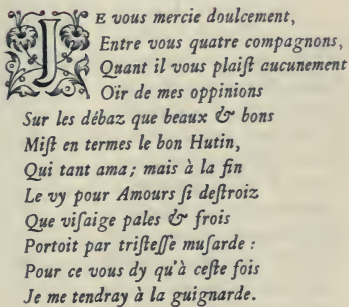 JE vous mercie doulcement,
Entre vous quatre compagnons,
Quant il vous plaiſt aucunement
Oïr de mes oppinions
Sur les débaz que beaux & bons
Miſt en termes le bon Hutin,
Qui tant ama; mais à la fin
Le vy pour Amours ſi deſtroiz
Que viſaige pales & frois
Portoit par triſteſſe muſarde :
Pour ce vous dy qu'à ceſte fois
Je me tendray à la guignarde.